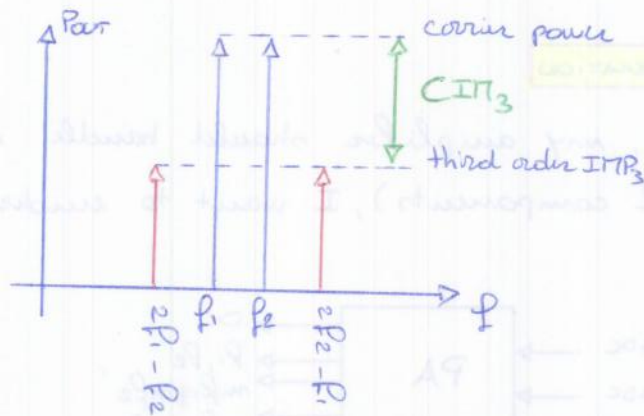 Pout
carrier power
CIM3
third order IMP3
2f1 - f2
f1
f2
2f2 - f1
f
PA